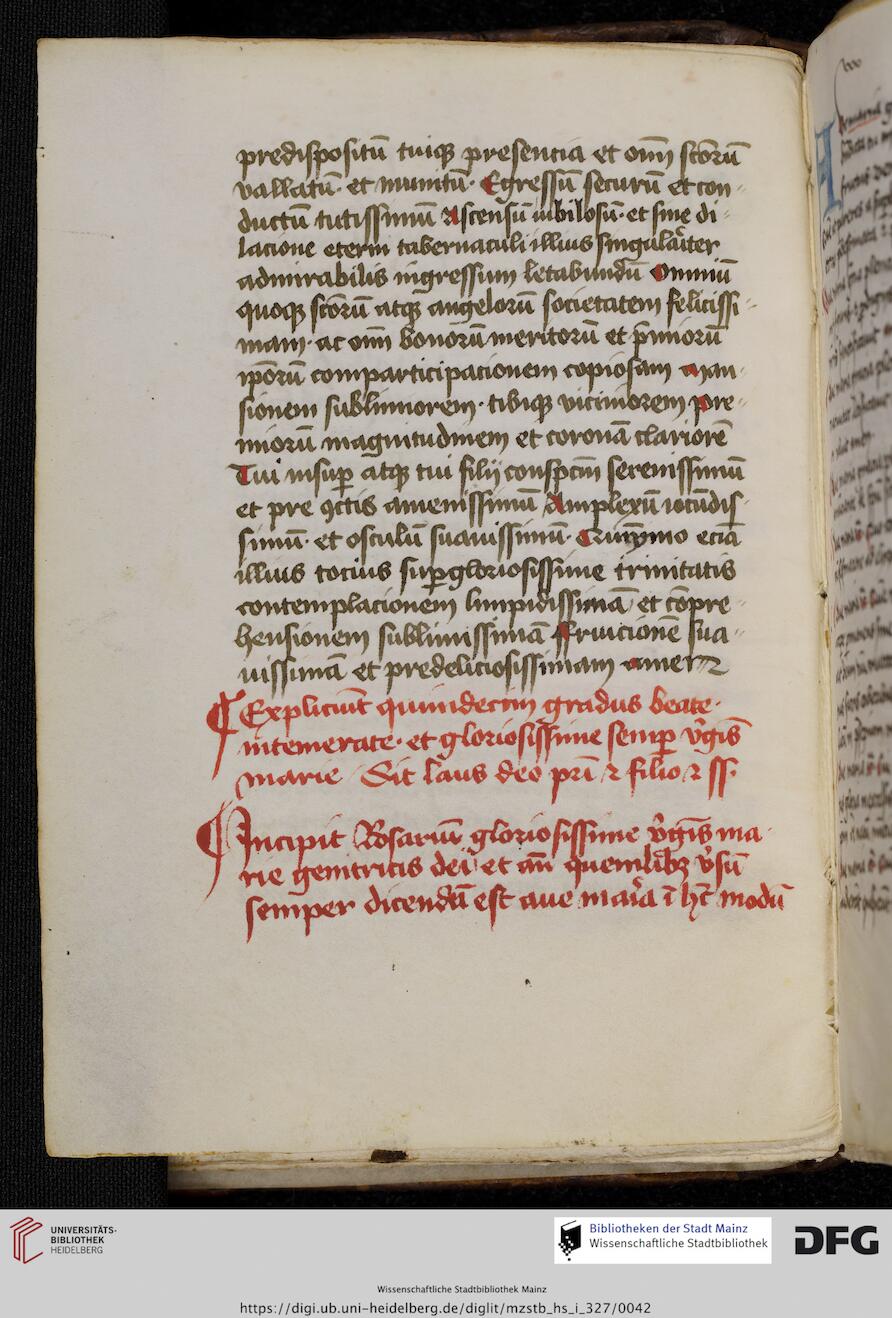 predispositū tuiqꝫ presencia et om̄ scōrū
vallatū· et munitū· Egressū securū et con-
ductū tutissimū Ascensū iubilosū· et sine di-
lacione eterni tabernaculi illius singularͥter
admirabilis ingressum letabundū Omniū
quoqꝫ scōrū atqꝫ angelorū societatem felicissi-
mam· ac om̄ bonorū meritorū et p̄miorū
ip̄orū comparticipacionem copiosam Man-
sionem sublimiorem· tibiqꝫ viciniorem pre-
miorū magnitudinem et coronā clariorē
Tui insuꝑ atqꝫ tui filij conspc̄m serenissimū
et pre ꝯctis amenissimū Amplexū iocūdis-
simū· et osculū suauissimū· Et eciā
illius tocius suꝑgloriosissime trinitatis
contemplacionem limpidissimā et cōpre-
hensionem sublimissimā Fruicionē sua-
uissimā et predeliciosissimam Amen
¶ Expliciūt quindecim gradus beate·
intemerate· et gloriosissime semꝑ v̓gīs
marie· Sit laus deo pr̄i ⁊ filio ⁊ ss·
¶ Incipit Rosariū gloriosissime v̓gīs ma-
rie genitricis dei et an̄ quemlibꝫ v̓sū
semper dicendū est aue maͥa ī hc̄ modū
UNIVERSITÄTS-
BIBLIOTHEK
HEIDELBERG
Bibliotheken der Stadt Mainz
Wissenschaftliche Stadtbibliothek
DFG
Wissenschaftliche Stadtbibliothek Mainz
https://digi.ub.uni-heidelberg.de/diglit/mzstb_hs_i_327/0042